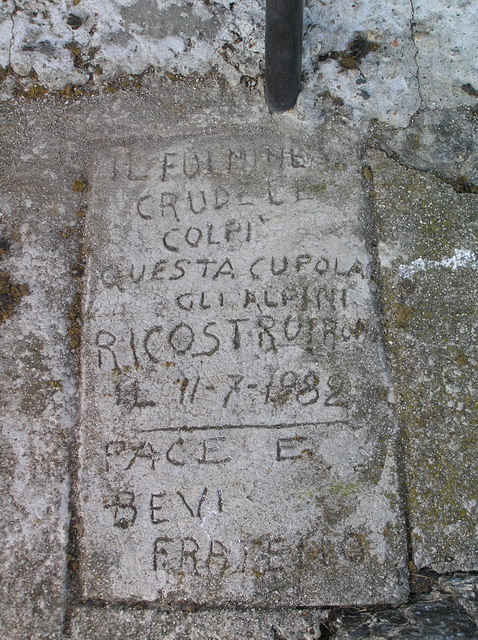 IL FULMINE
CRUDELE
COLPI'
QUESTA CUPOLA
GLI ALPINI
RICOSTRUIRON
IL 11-7-1982
PACE E
BEVI
FRATELLO